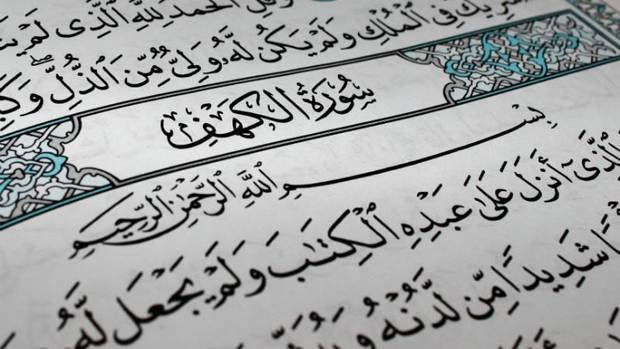 وَقُلِ الْحَمْدُ لِلَّهِ الَّذِي لَمْ
شَرِيكٌ فِي ٱلْمُلْكِ وَلَمْ يَكُن لَّهُۥ وَلِىٌّ مِّنَ ٱلذُّلِّ وَكَبِّ
سُورَةُ الكَهْفِ
بِسْمِ ٱللَّهِ ٱلرَّحْمَٰنِ ٱلرَّحِيمِ
ٱلَّذِىٓ أَنزَلَ عَلَىٰ عَبْدِهِ ٱلْكِتَٰبَ وَلَمْ يَجْعَل لَّهُۥ
شَدِيدًا مِّن لَّدُنْهُ وَ